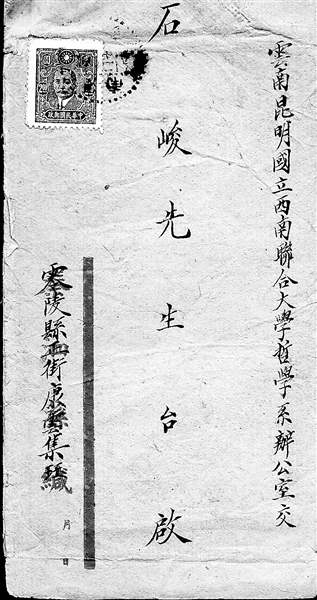 雲南昆明國立西南聯合大學哲學系辦公室交
石峻先生台啟
零陵縣正街康雲集緘
月 日
中華民國郵政